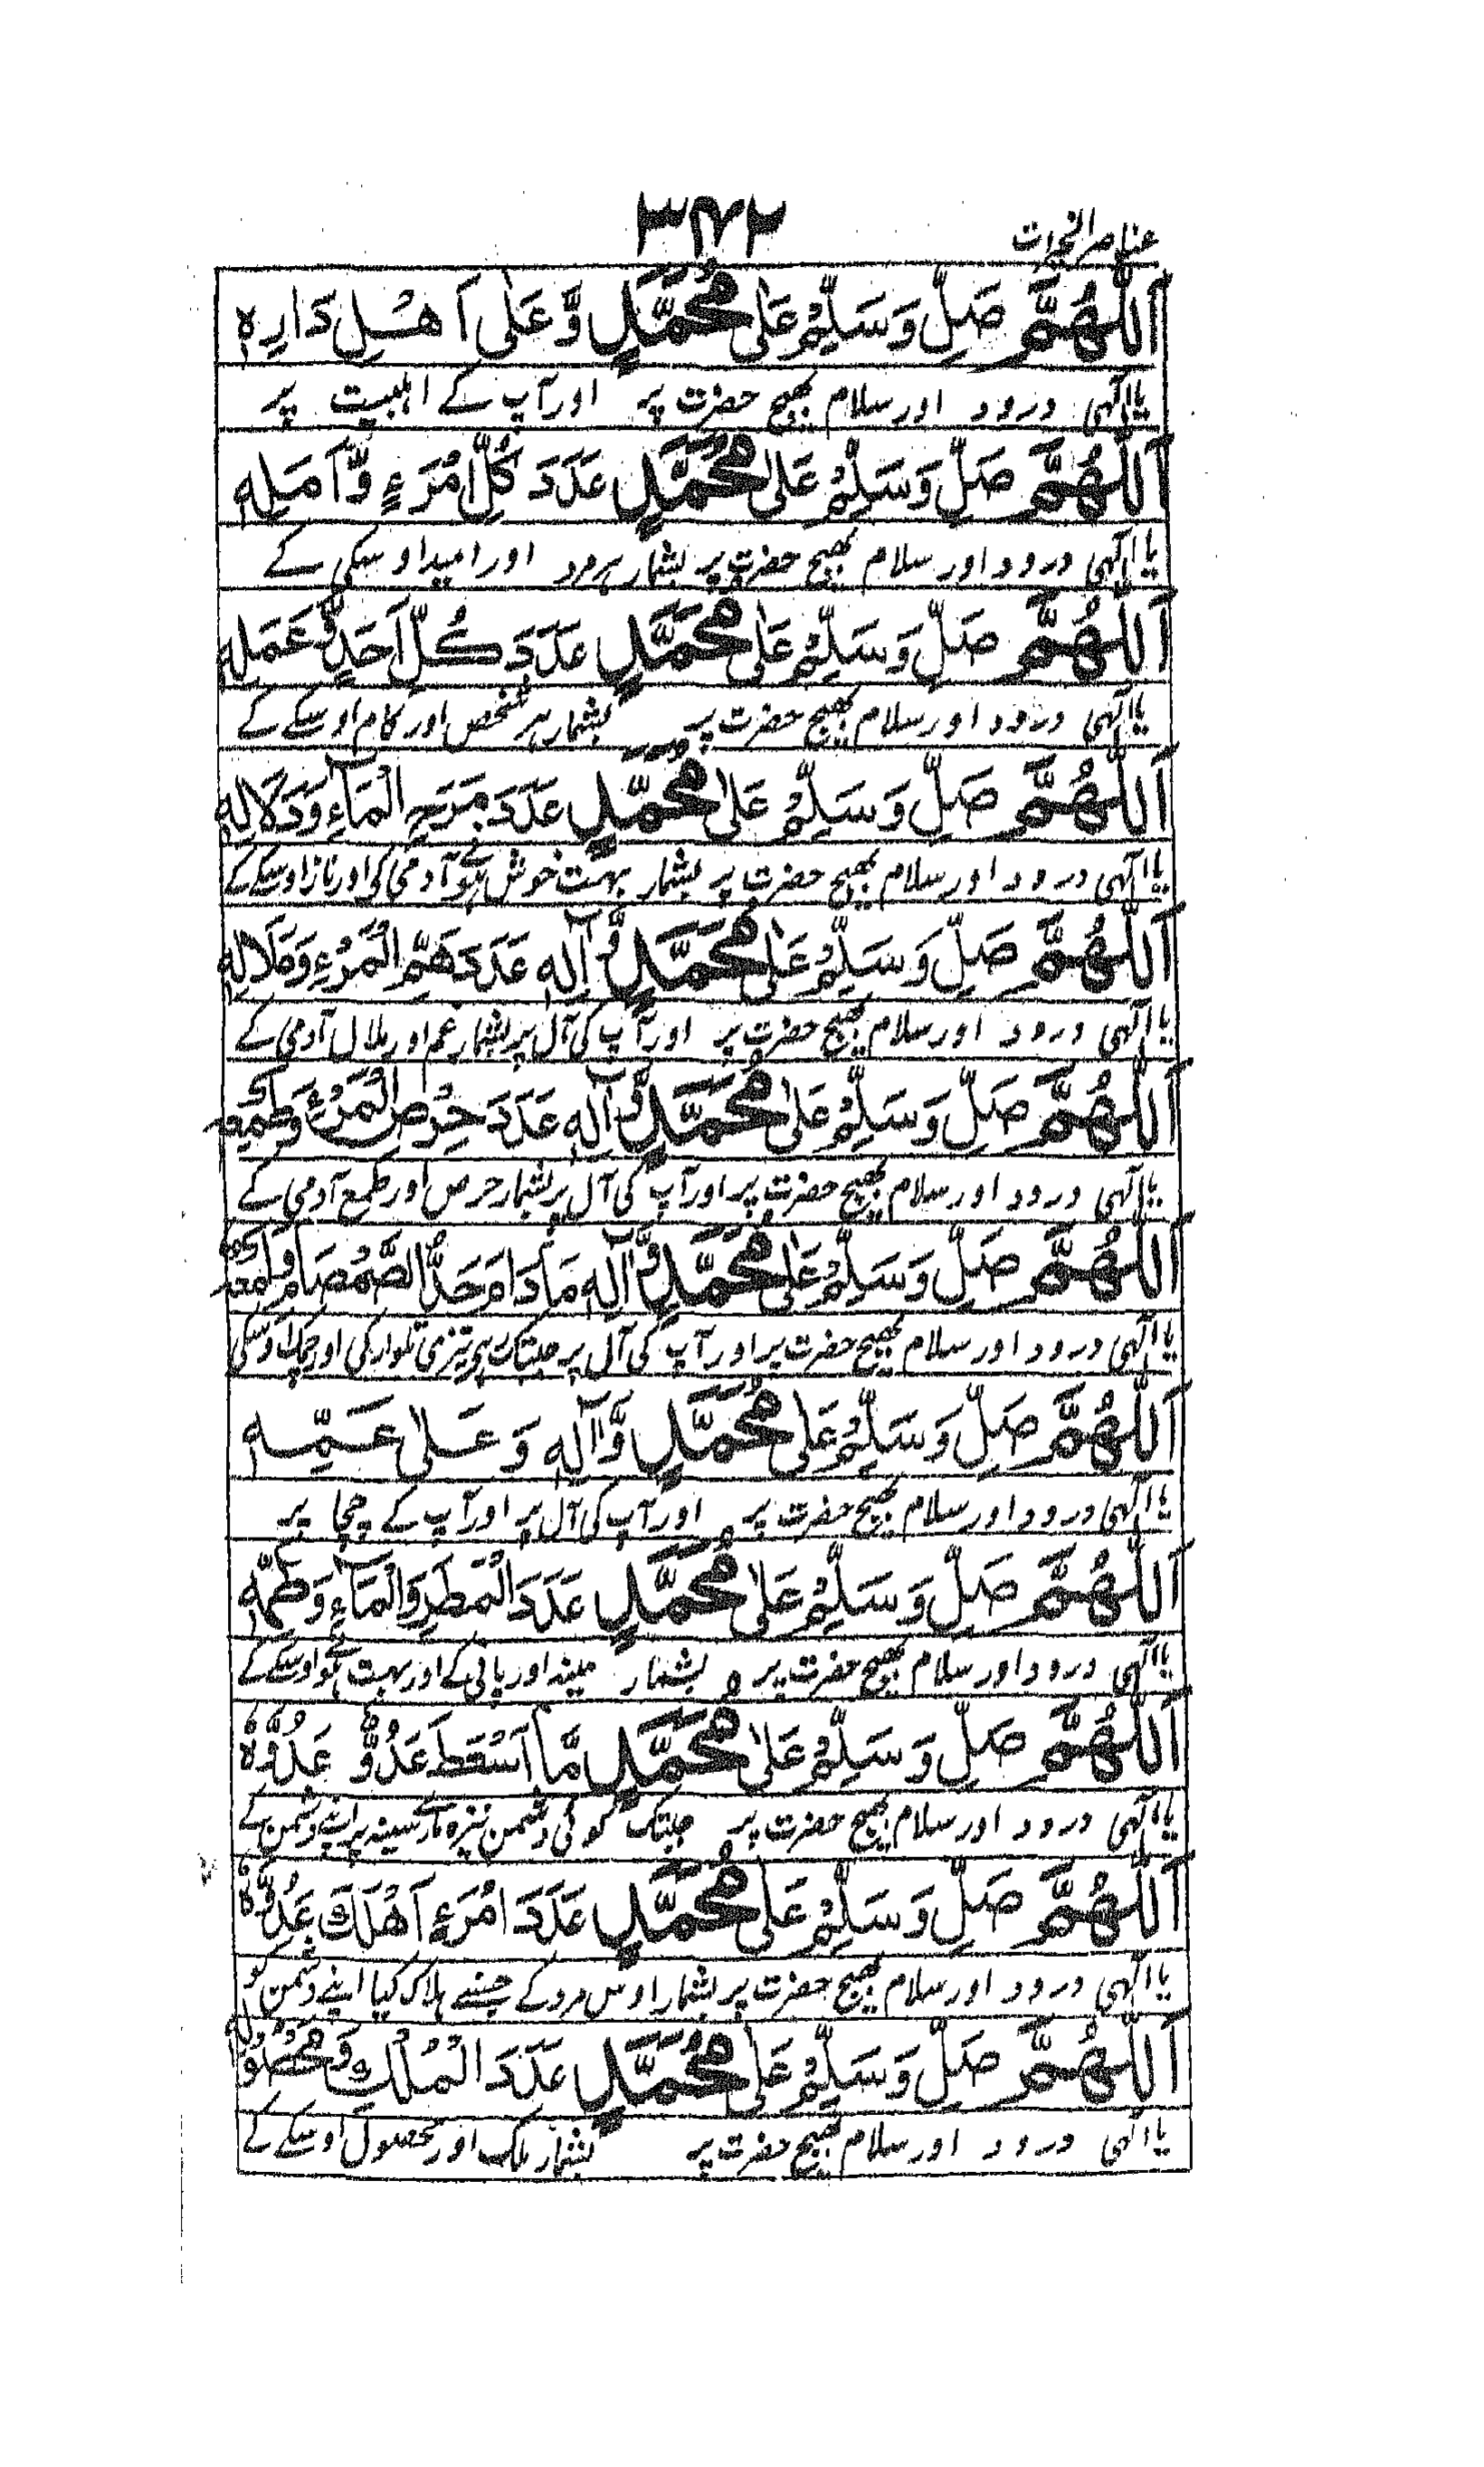 ۳۴۲
عناصر الخیرات
اَللّٰهُمَّ صَلِّ وَسَلِّمْ عَلٰی مُحَمَّدٍ وَّعَلٰی اَهْلِ دَارِهٖ
یا الٰہی درود اور سلام بھیج حضرت پر اور آپ کے اہلبیت پر
اَللّٰهُمَّ صَلِّ وَسَلِّمْ عَلٰی مُحَمَّدٍ عَدَدَ كُلِّ امْرَءٍ وَّاَمَلِهٖ
یا الٰہی درود اور سلام بھیج حضرت پر بشمار ہر مرد اور امید اوسکی کے
اَللّٰهُمَّ صَلِّ وَسَلِّمْ عَلٰی مُحَمَّدٍ عَدَدَ كُلِّ اَحَدٍ وَّعَمَلِهٖ
یا الٰہی درود اور سلام بھیج حضرت پر بشمار ہر شخص اور کام اوسکے کے
اَللّٰهُمَّ صَلِّ وَسَلِّمْ عَلٰی مُحَمَّدٍ عَدَدَ مَرَحِ الْمَآءِ وَدَلَالِهٖ
یا الٰہی درود اور سلام بھیج حضرت پر بشمار بہت خوش ہونے آدمی کی اور ناز اوسکے کے
اَللّٰهُمَّ صَلِّ وَسَلِّمْ عَلٰی مُحَمَّدٍ وَّاٰلِهٖ عَدَدَ هَمِّ الْمَرْءِ وَمَلَالِهٖ
یا الٰہی درود اور سلام بھیج حضرت پر اور آپ کی آل پر بشمار غم اور ملال آدمی کے
اَللّٰهُمَّ صَلِّ وَسَلِّمْ عَلٰی مُحَمَّدٍ وَّاٰلِهٖ عَدَدَ حِرْصِ الْمَرْءِ وَطَمْعِهٖ
یا الٰہی درود اور سلام بھیج حضرت پر اور آپ کی آل پر بشمار حرص اور طمع آدمی کے
اَللّٰهُمَّ صَلِّ وَسَلِّمْ عَلٰی مُحَمَّدٍ وَّاٰلِهٖ مَا دَامَ حَدُّ الصَّمْصَامِ وَلَمْعِهٖ
یا الٰہی درود اور سلام بھیج حضرت پر اور آپ کی آل پر جبتک ہے تیزی تلوار کی اور چمک اوسکی
اَللّٰهُمَّ صَلِّ وَسَلِّمْ عَلٰی مُحَمَّدٍ وَّاٰلِهٖ وَعَلٰی عَمِّهٖ
یا الٰہی درود اور سلام بھیج حضرت پر اور آپ کی آل پر اور آپ کے چچا پر
اَللّٰهُمَّ صَلِّ وَسَلِّمْ عَلٰی مُحَمَّدٍ عَدَدَ الْمَطَرِ وَالْمَآءِ وَطَمِّهٖ
یا الٰہی درود اور سلام بھیج حضرت پر بشمار مینہ اور پانی کے اور بہت ہونے اوسکے کے
اَللّٰهُمَّ صَلِّ وَسَلِّمْ عَلٰی مُحَمَّدٍ مَّا اَسْقَطَ عَدُوٌّ عَدُوَّهٗ
یا الٰہی درود اور سلام بھیج حضرت پر جبتک کوئی دشمن نیزہ مارے سینہ پر اپنے دشمن کے
اَللّٰهُمَّ صَلِّ وَسَلِّمْ عَلٰی مُحَمَّدٍ عَدَدَ امْرَءٍ اَهْلَكَ عَدُوَّهٗ
یا الٰہی درود اور سلام بھیج حضرت پر بشمار اوس مرد کے جسنے ہلاک کیا اپنے دشمن کو
اَللّٰهُمَّ صَلِّ وَسَلِّمْ عَلٰی مُحَمَّدٍ عَدَدَ الْمُلْكِ وَمَحْصُوْلِهٖ
یا الٰہی درود اور سلام بھیج حضرت پر بشمار ملک اور محصول اوسکے کے